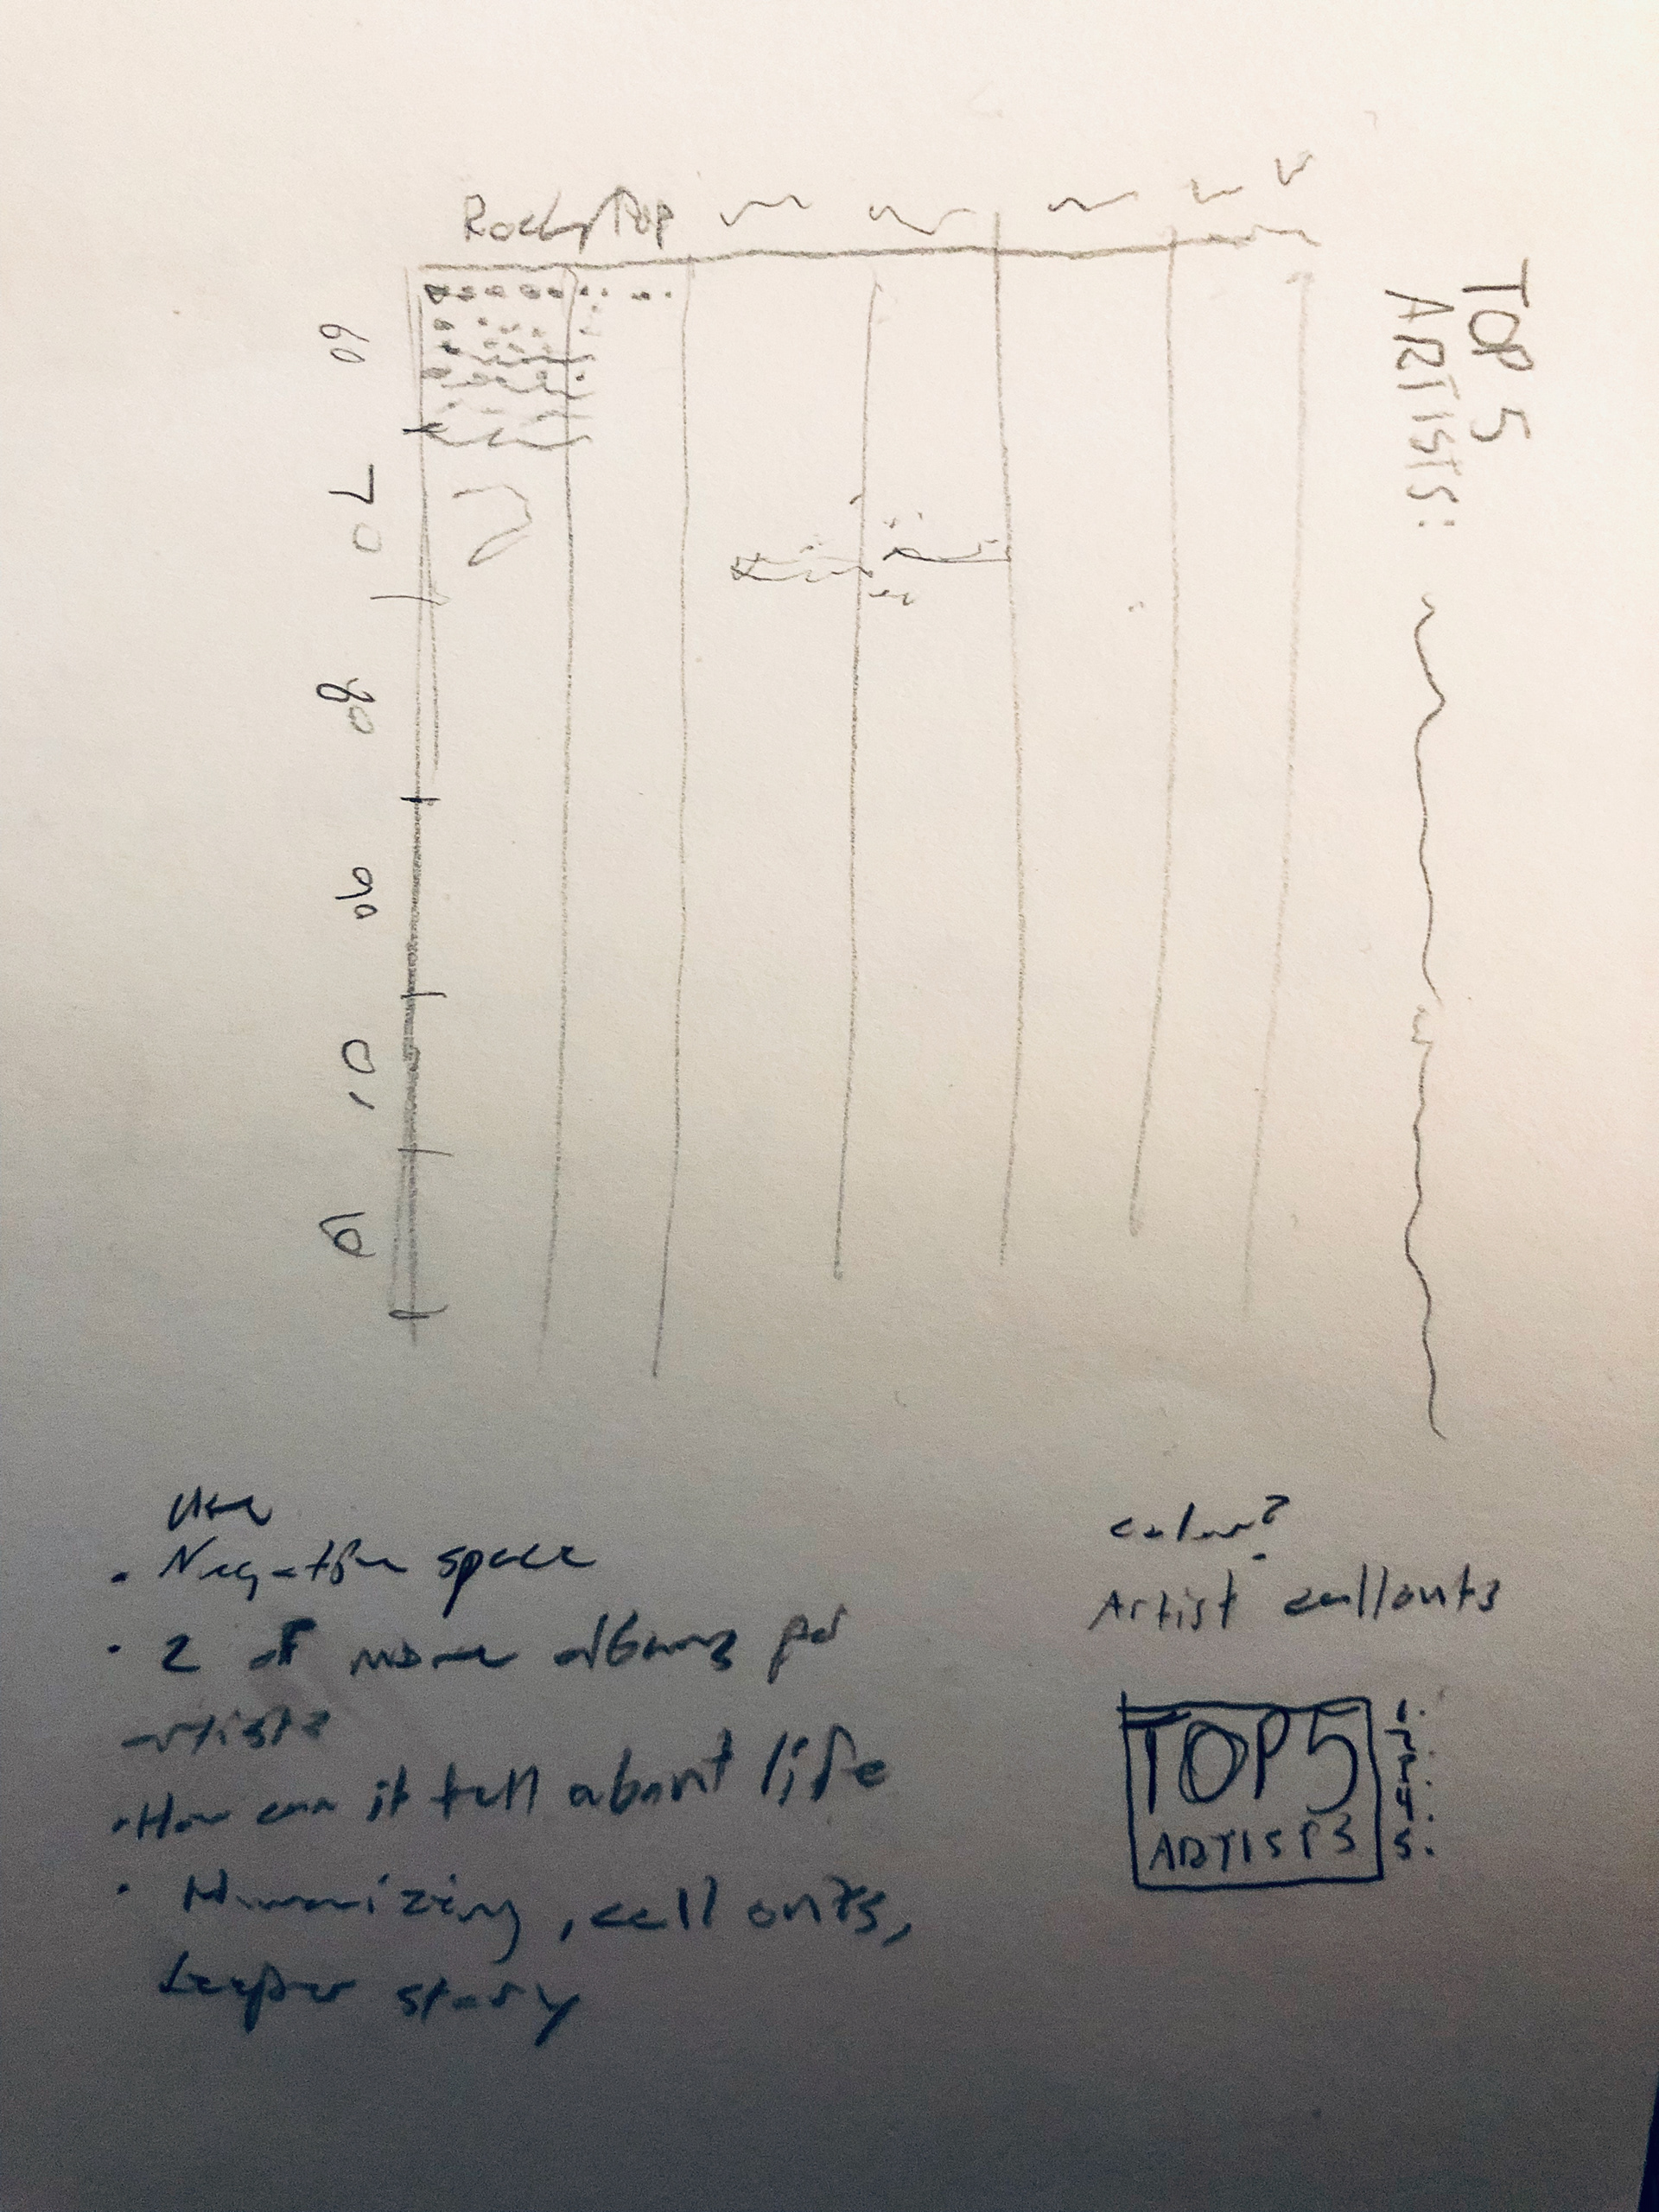 Rock/Pop
TOP 5
ARTISTS:
60
70
80
90
10
Use
• Negative space
• 2 or more albums per
artists
• How can it tell about life
• Humanizing, call outs,
deeper story
color?
Artist callouts
TOP 5
ARTISTS
1.
2.
3.
4.
5.